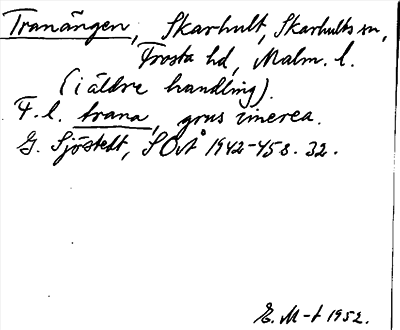 Tranängen, Skarhult, Skarhults sn,
Frosta hd, Malm. l.
(i äldre handling).
F. l. trana, grus cinerea.
G. Sjöstedt, SOÅ 1942-45 s. 32.
E. M-t 1952.